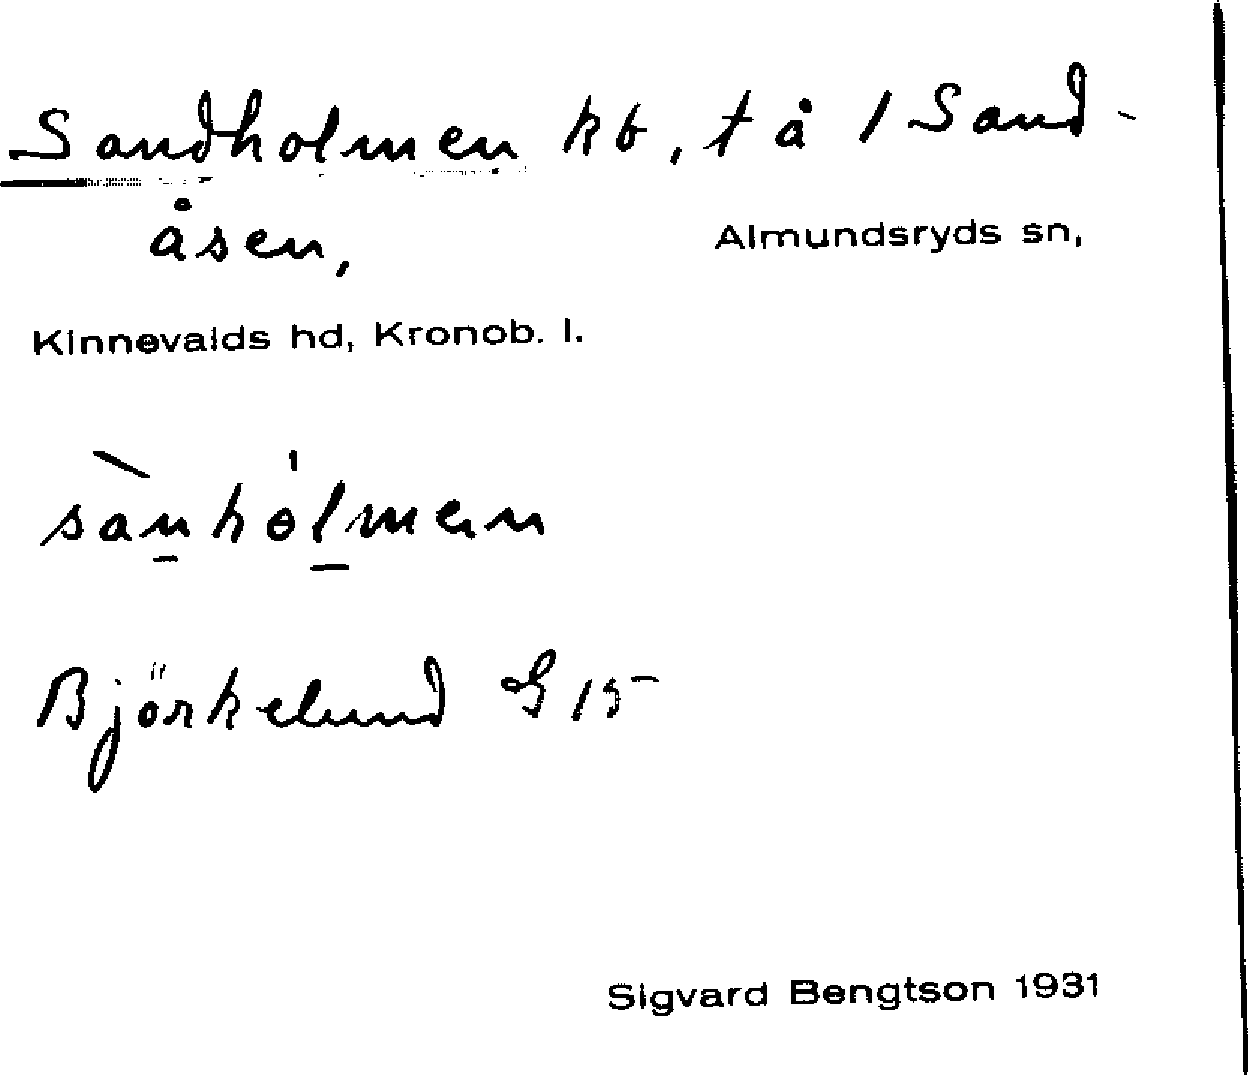 Sandholmen kb, t å 1 Sand-
åsen, Almundsryds sn,
Kinnevalds hd, Kronob. l.
sànhólmen
Björkelund G 15
Sigvard Bengtson 1931